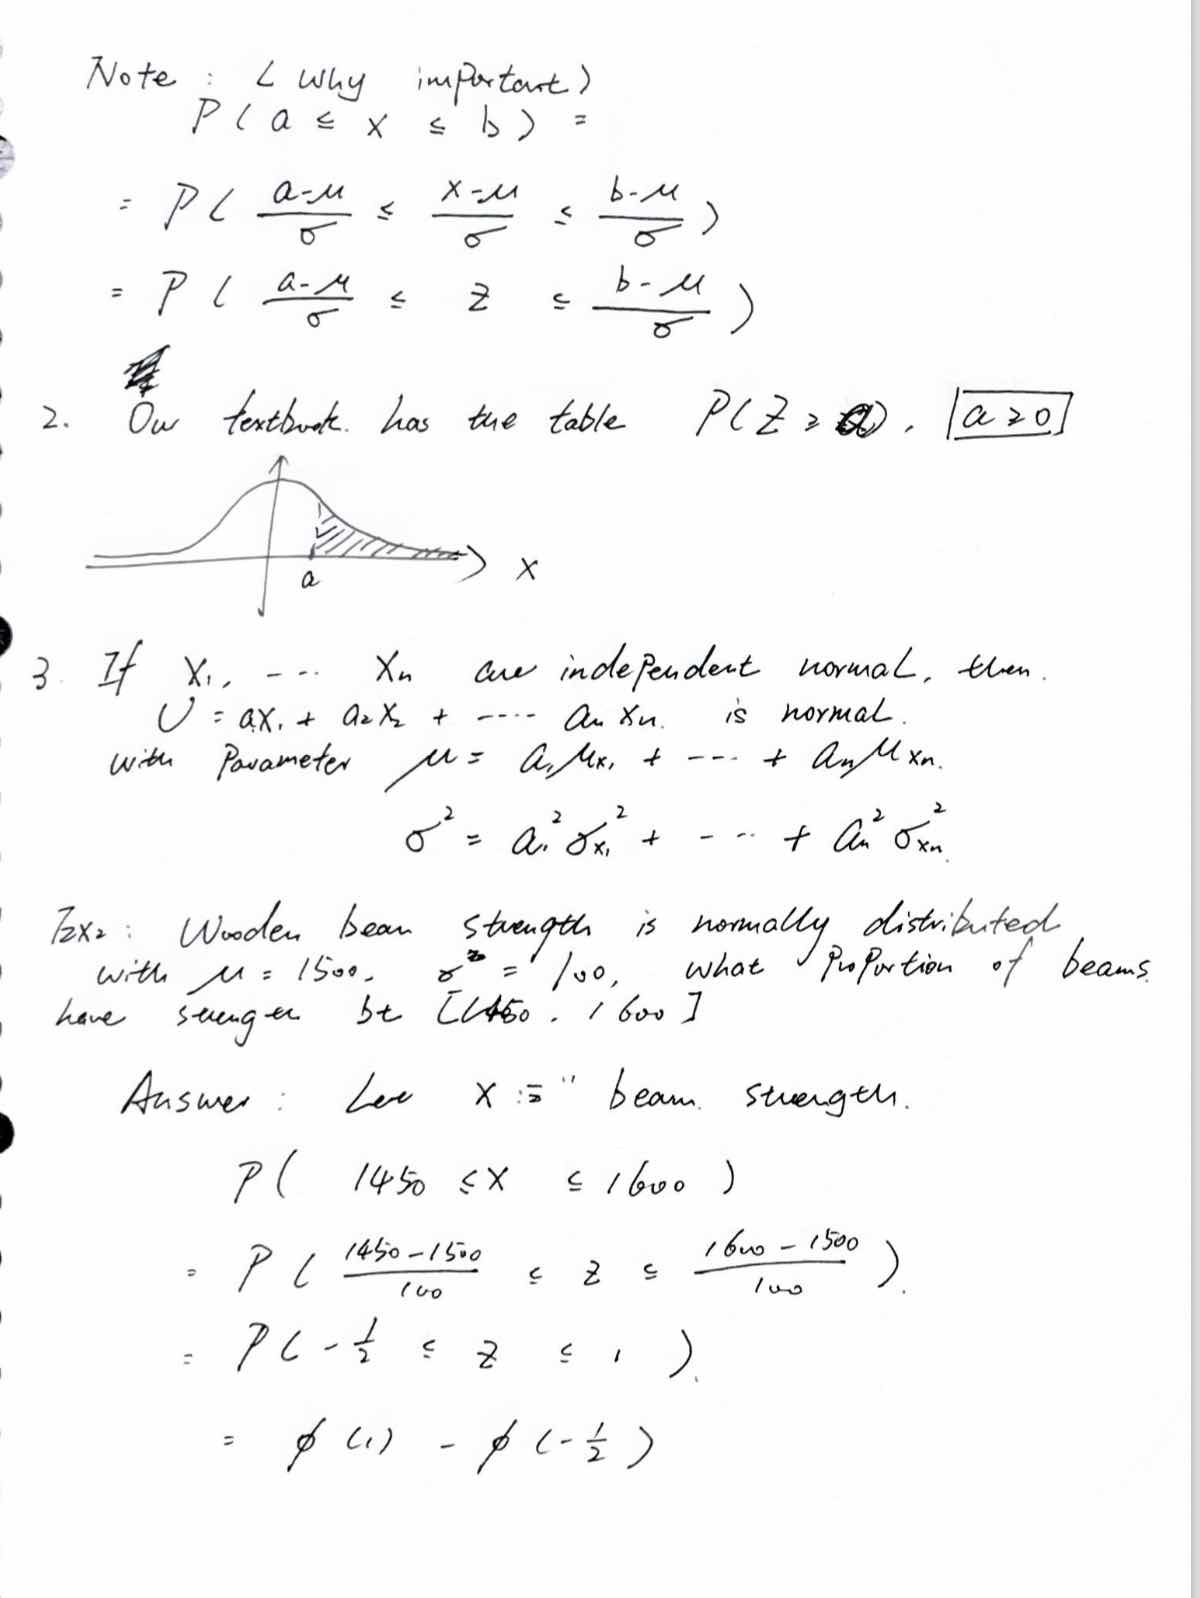 Note : ( Why important )
P ( a ≤ x ≤ b ) =
= P ( (a-μ)/σ ≤ (x-μ)/σ ≤ (b-μ)/σ )
= P ( (a-μ)/σ ≤ z ≤ (b-μ)/σ )
2. Our textbook. has the table P(Z ≥ a) . a ≥ 0
a
x
3. If X₁, - -·· Xn are independent normal, then.
U = a₁X₁ + a₂X₂ + ---·· an Xn. is normal.
with Parameter μ = a₁μx₁ + --- + anμxn.
σ² = a₁²σx₁² + - -·· + an²σxn²
Ex2: Wooden beam strength is normally distributed
with μ = 1500. σ = 100, what proportion of beams
have strength bt [1450 . 1600]
Answer : Let X := " beam. strength.
P( 1450 ≤ X ≤ 1600 )
= P ( (1450-1500)/100 ≤ z ≤ (1600-1500)/100 ).
= P(-1/2 ≤ z ≤ 1 ).
= ϕ(1) - ϕ(-1/2)